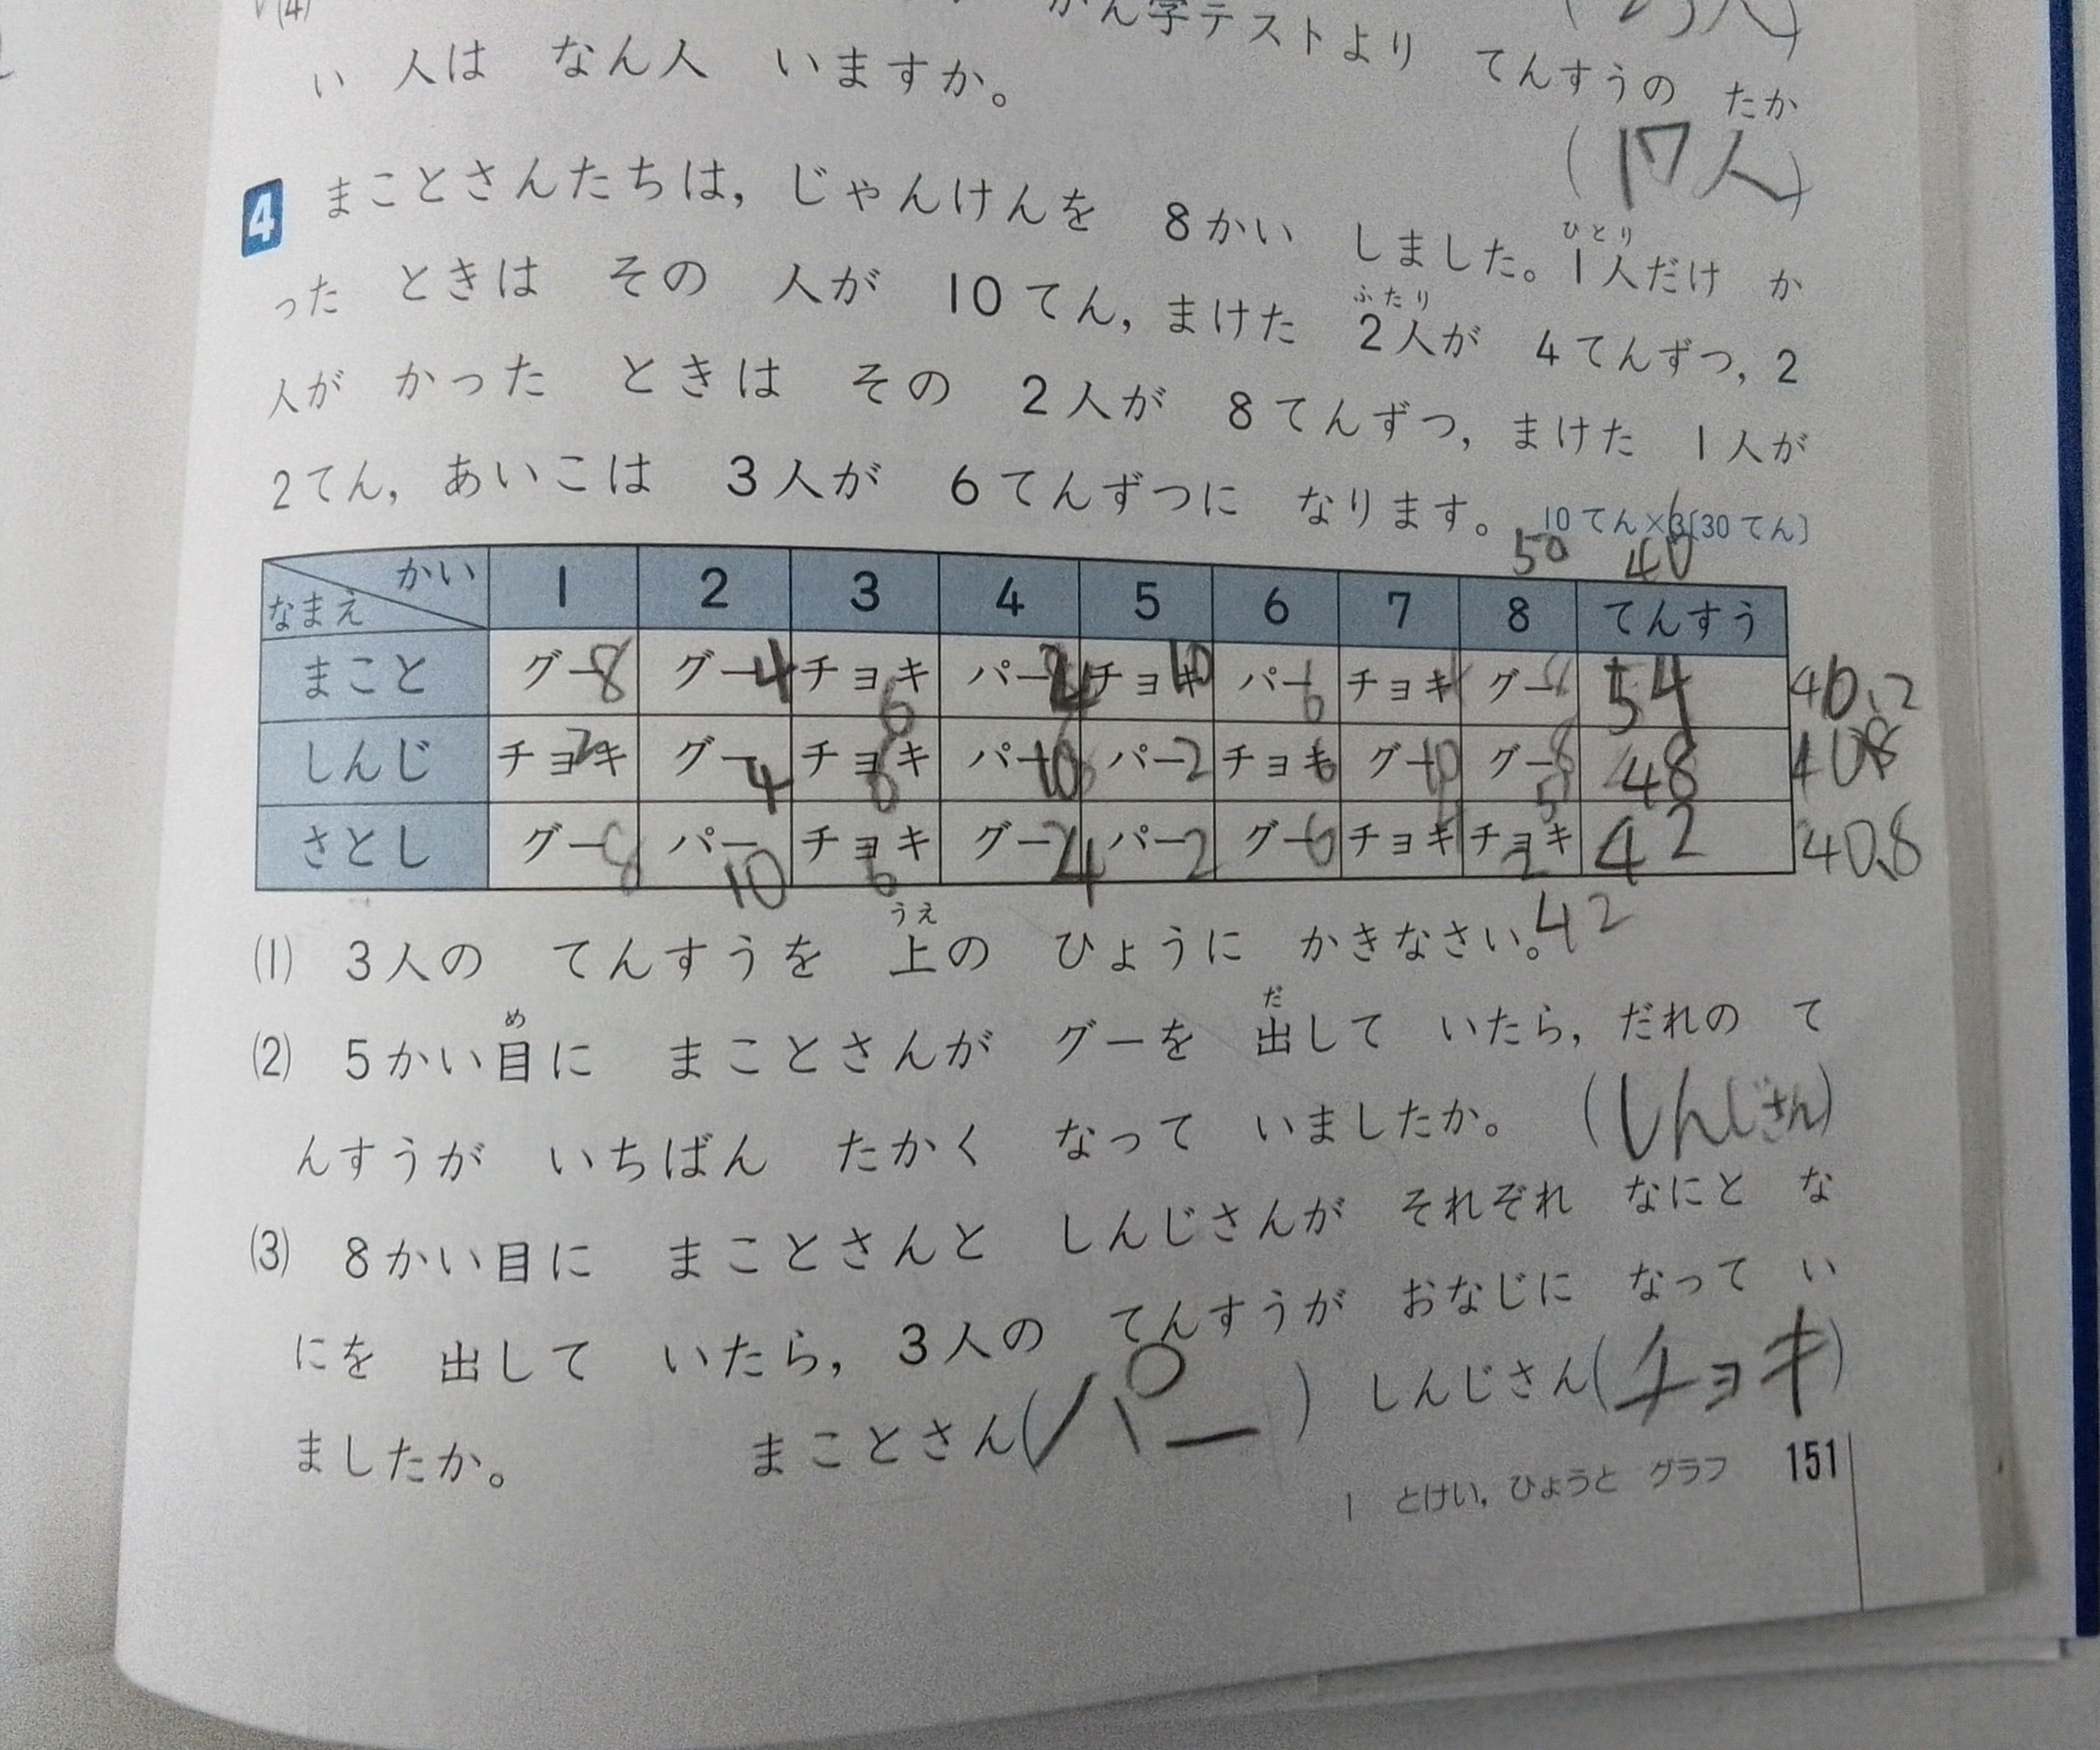 (4) かん字テストより てんすうの たか
い 人は なん人 いますか。
(17人)
4 まことさんたちは，じゃんけんを 8かい しました。1人だけ か
ひとり
った ときは その 人が 10てん，まけた 2人が 4てんずつ，2
ふたり
人が かった ときは その 2人が 8てんずつ，まけた 1人が
2てん，あいこは 3人が 6てんずつに なります。 10てん×3〔30てん〕
50 40
かい なまえ 1 2 3 4 5 6 7 8 てんすう
まこと グー8 グー4 チョキ6 パー チョキ10 パー6 チョキ グー 54
しんじ チョキ2 グー4 チョキ6 パー10 パー2 チョキ6 グー10 グー8 48 408
さとし グー8 パー10 チョキ6 グー4 パー2 グー6 チョキ チョキ2 42 40.8
42
うえ
(1) 3人の てんすうを 上の ひょうに かきなさい。
め だ
(2) 5かい目に まことさんが グーを 出して いたら，だれの て
んすうが いちばん たかく なって いましたか。 (しんじさん)
(3) 8かい目に まことさんと しんじさんが それぞれ なにと な
にを 出して いたら，3人の てんすうが おなじに なって い
ましたか。 まことさん(パー) しんじさん(チョキ)
1 とけい，ひょうと グラフ 151